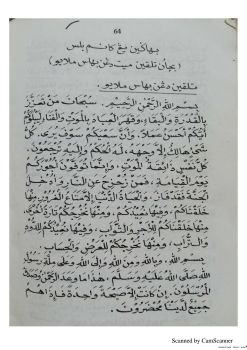 64
بهاݢين يڠ كأنم بلس
(بچأن تلقين ميت دڠن بهاس ملايو)
تلقين دڠن بهاس ملايو.
بسم الله الرحمن الرحيم. سبحان من تعزز
بالقدرة والبقاء، وقهر العباد بالموت والفناء ليبلوكم
أيكم أحسن عملا، وأن سعيكم سوف يرى، كل
شيء هالك إلا وجهه، له الحكم وإليه ترجعون،
كل نفس ذائقة الموت، وإنما توفون أجوركم
يوم القيامة، فمن زحزح عن النار وأدخل
الجنة فقد فاز، وما الحياة الدنيا إلا متاع الغرور، منها
خلقناكم، وفيها نعيدكم، ومنها نخرجكم تارة أخرى،
منها خلقناكم للأجر والثواب، وفيها نعيدكم للدود
والتراب، ومنها نخرجكم للعرض والحساب.
بسم الله، وبالله ومن الله وإلى الله وعلى ملة رسول الله
صلى الله عليه وسلم، هذا ما وعد الرحمن وصدق
المرسلون، إن كانت إلا صيحة واحدة فإذا هم
جميع لدينا محضرون.
Scanned by CamScanner